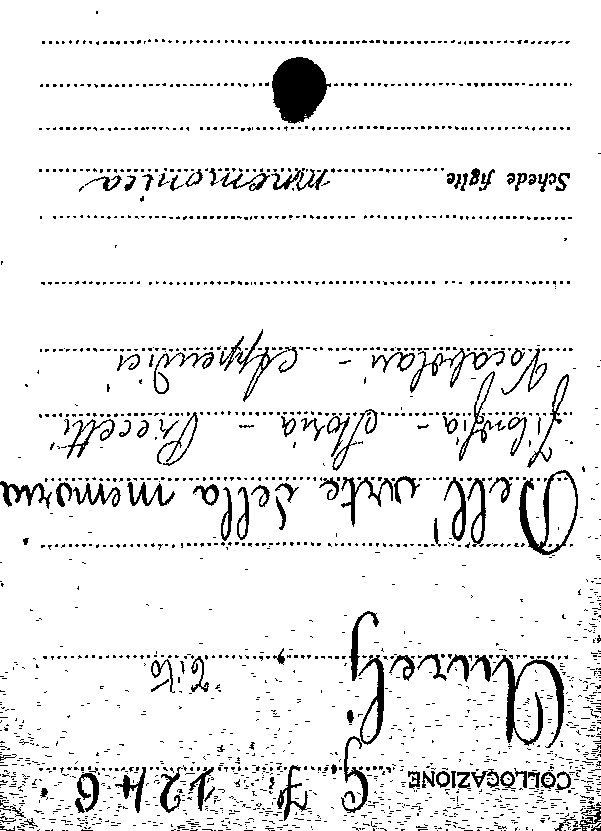 COLLOCAZIONE G. F. 1246.
Aurelj, Tito
Dell'arte della memoria
Filosofia - Storia - Precetti
Vocabolari - Appendici
Schede figlie mnemonica